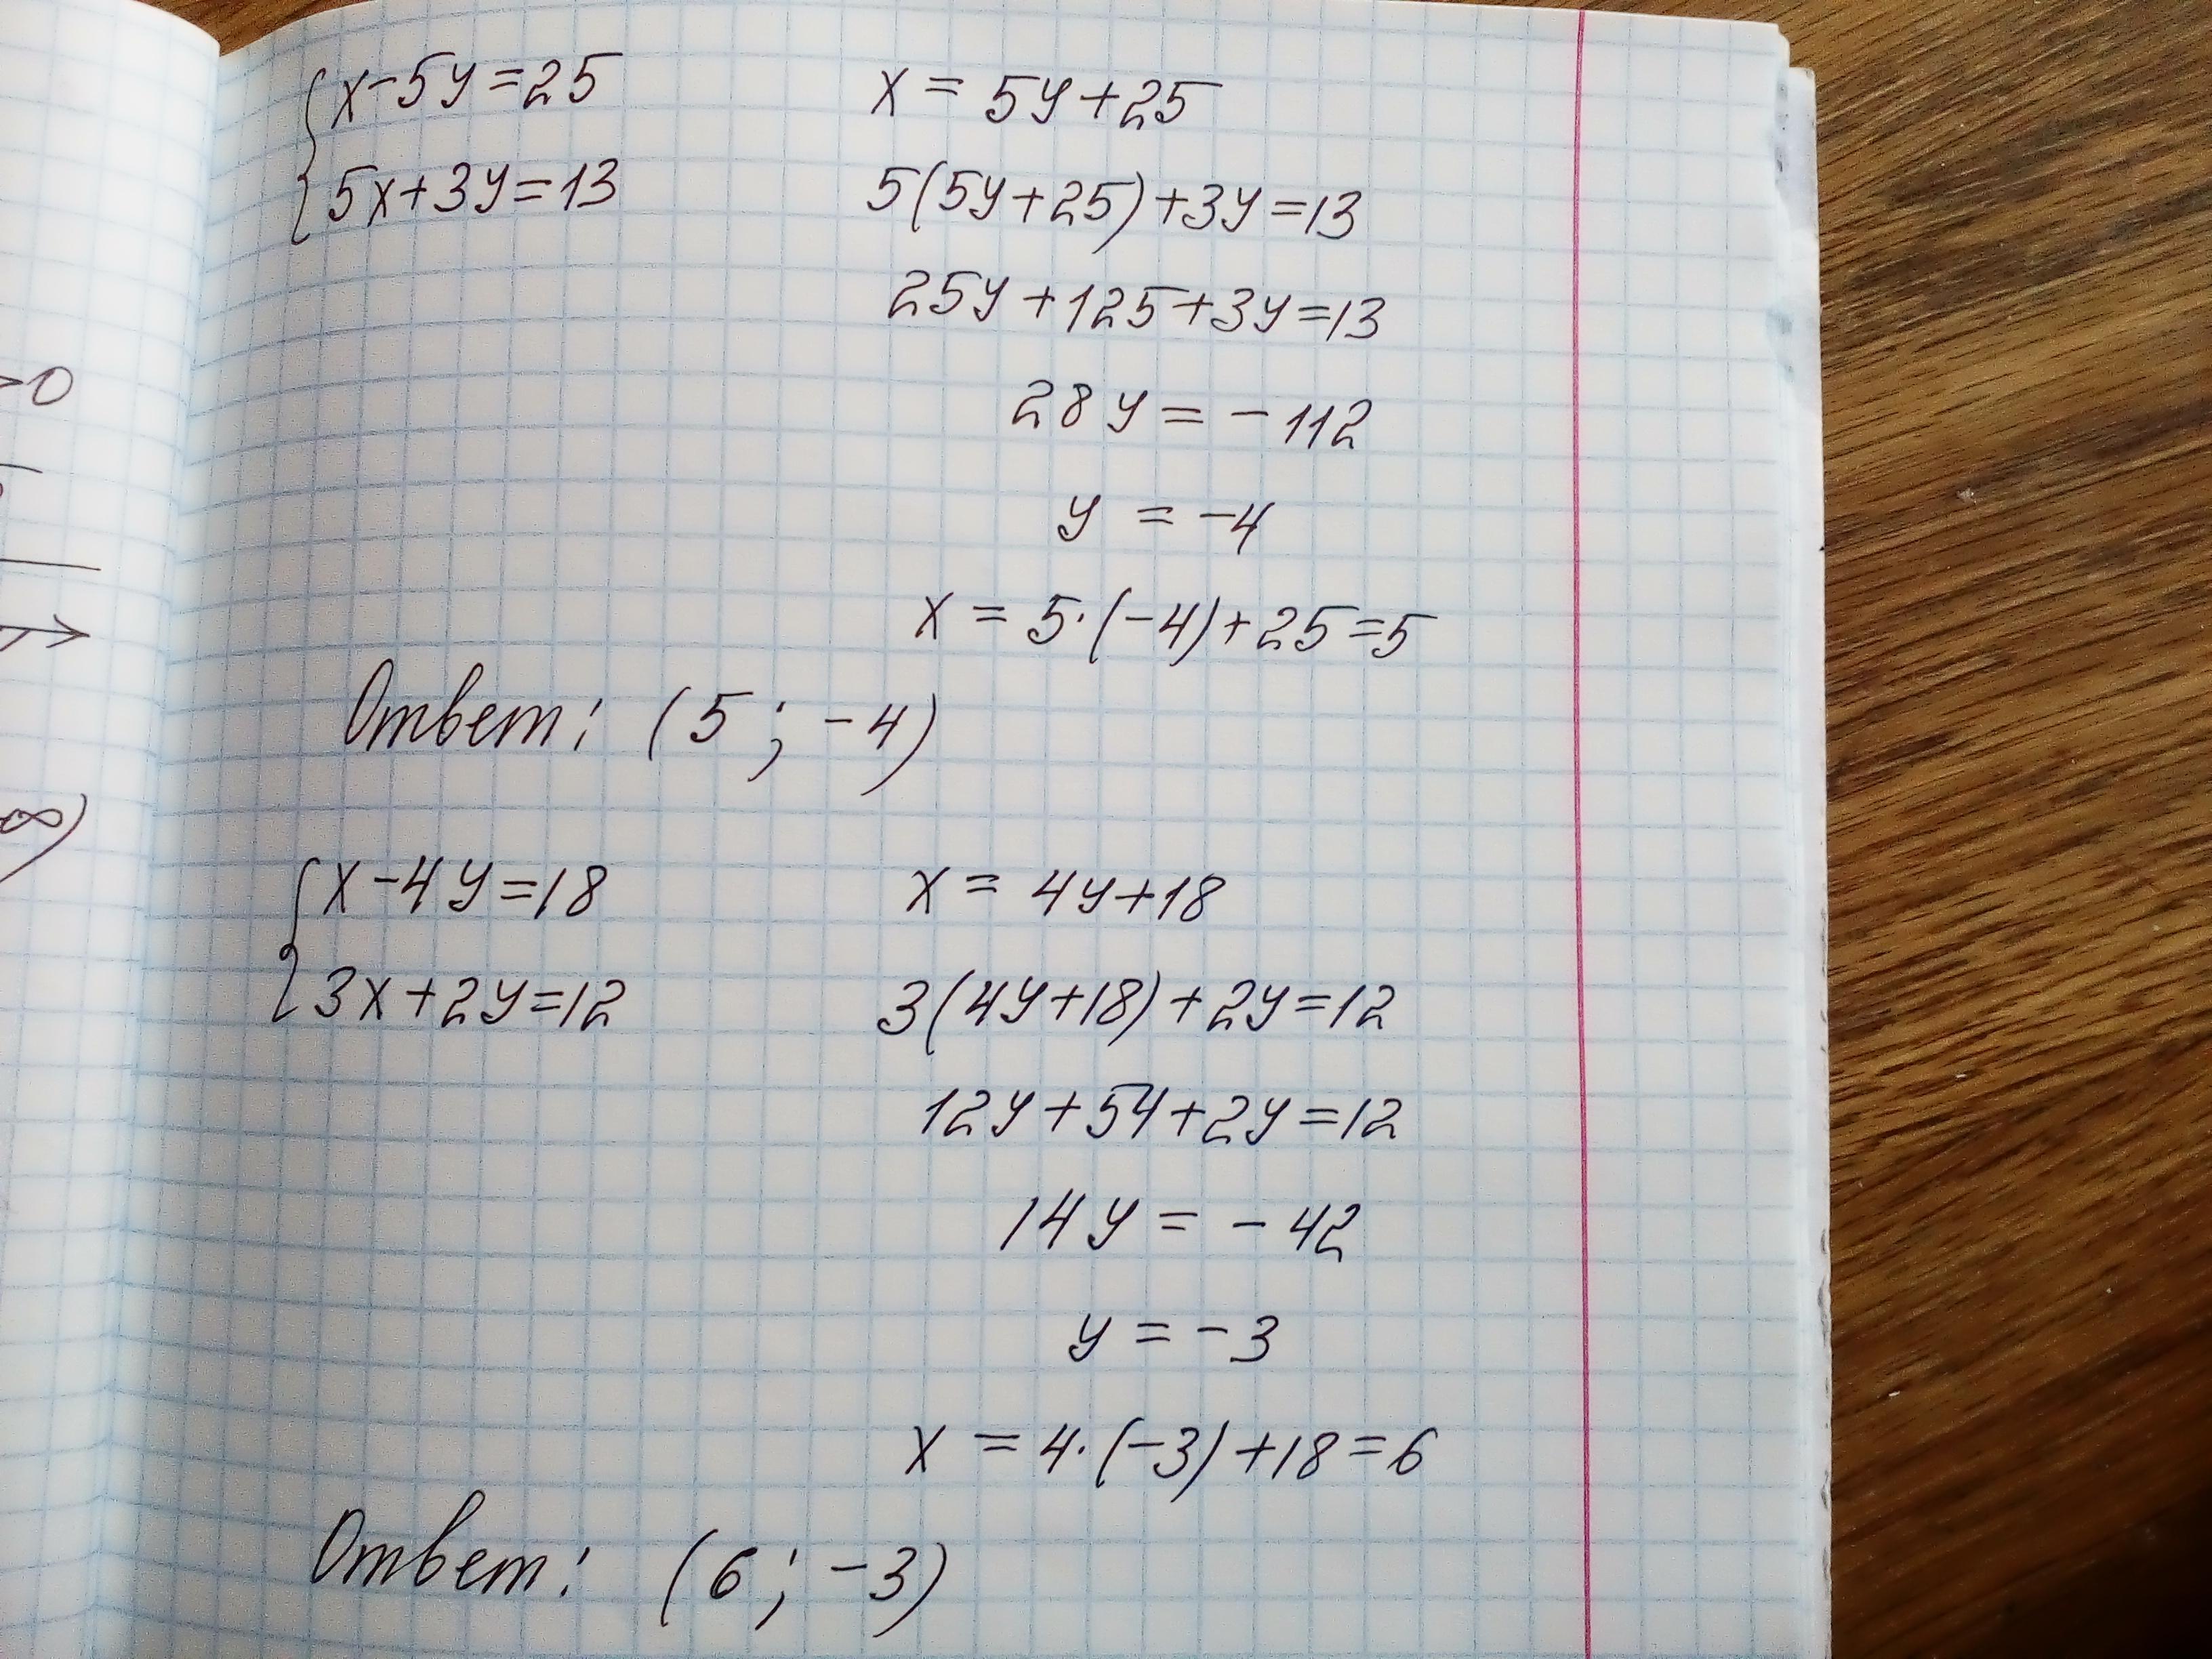 x-5y=25
5x+3y=13
x = 5y+25
5(5y+25)+3y=13
25y+125+3y=13
28y = -112
y = -4
x = 5·(-4)+25=5
Ответ: (5; -4)
x-4y=18
3x+2y=12
x = 4y+18
3(4y+18)+2y=12
12y+54+2y=12
14y = -42
y = -3
x = 4·(-3)+18=6
Ответ: (6; -3)
>0
∞)